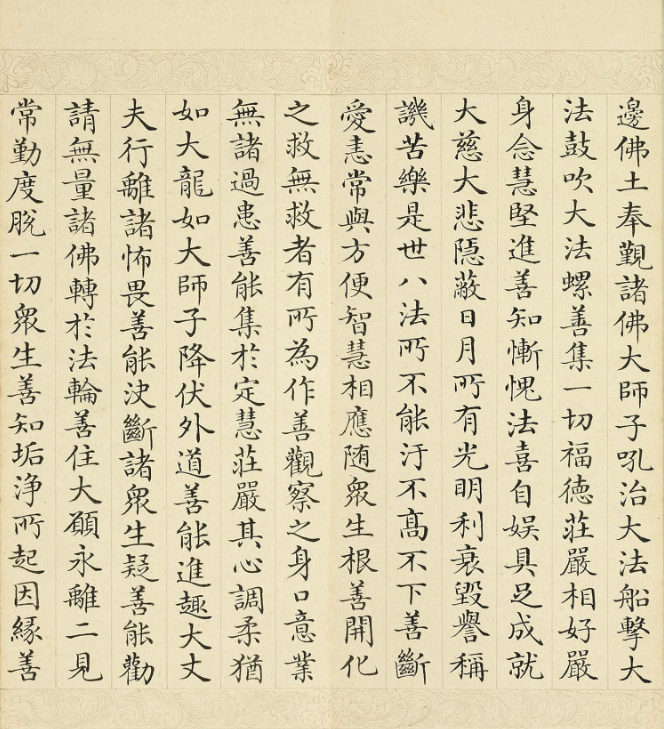 邊佛土奉覲諸佛大師子吼治大法船擊大
法鼓吹大法螺善集一切福德莊嚴相好嚴
身念慧堅進善知慚愧法喜自娛具足成就
大慈大悲隱蔽日月所有光明利衰毀譽稱
譏苦樂是世八法所不能汙不髙不下善斷
愛恚常與方便智慧相應随眾生根善開化
之救無救者有所為作善觀察之身口意業
無諸過患善能集於定慧莊嚴其心調柔猶
如大龍如大師子降伏外道善能進趣大丈
夫行離諸怖畏善能決斷諸眾生疑善能勸
請無量諸佛轉於法輪善住大願永離二見
常勤度脫一切眾生善知垢淨所起因緣善